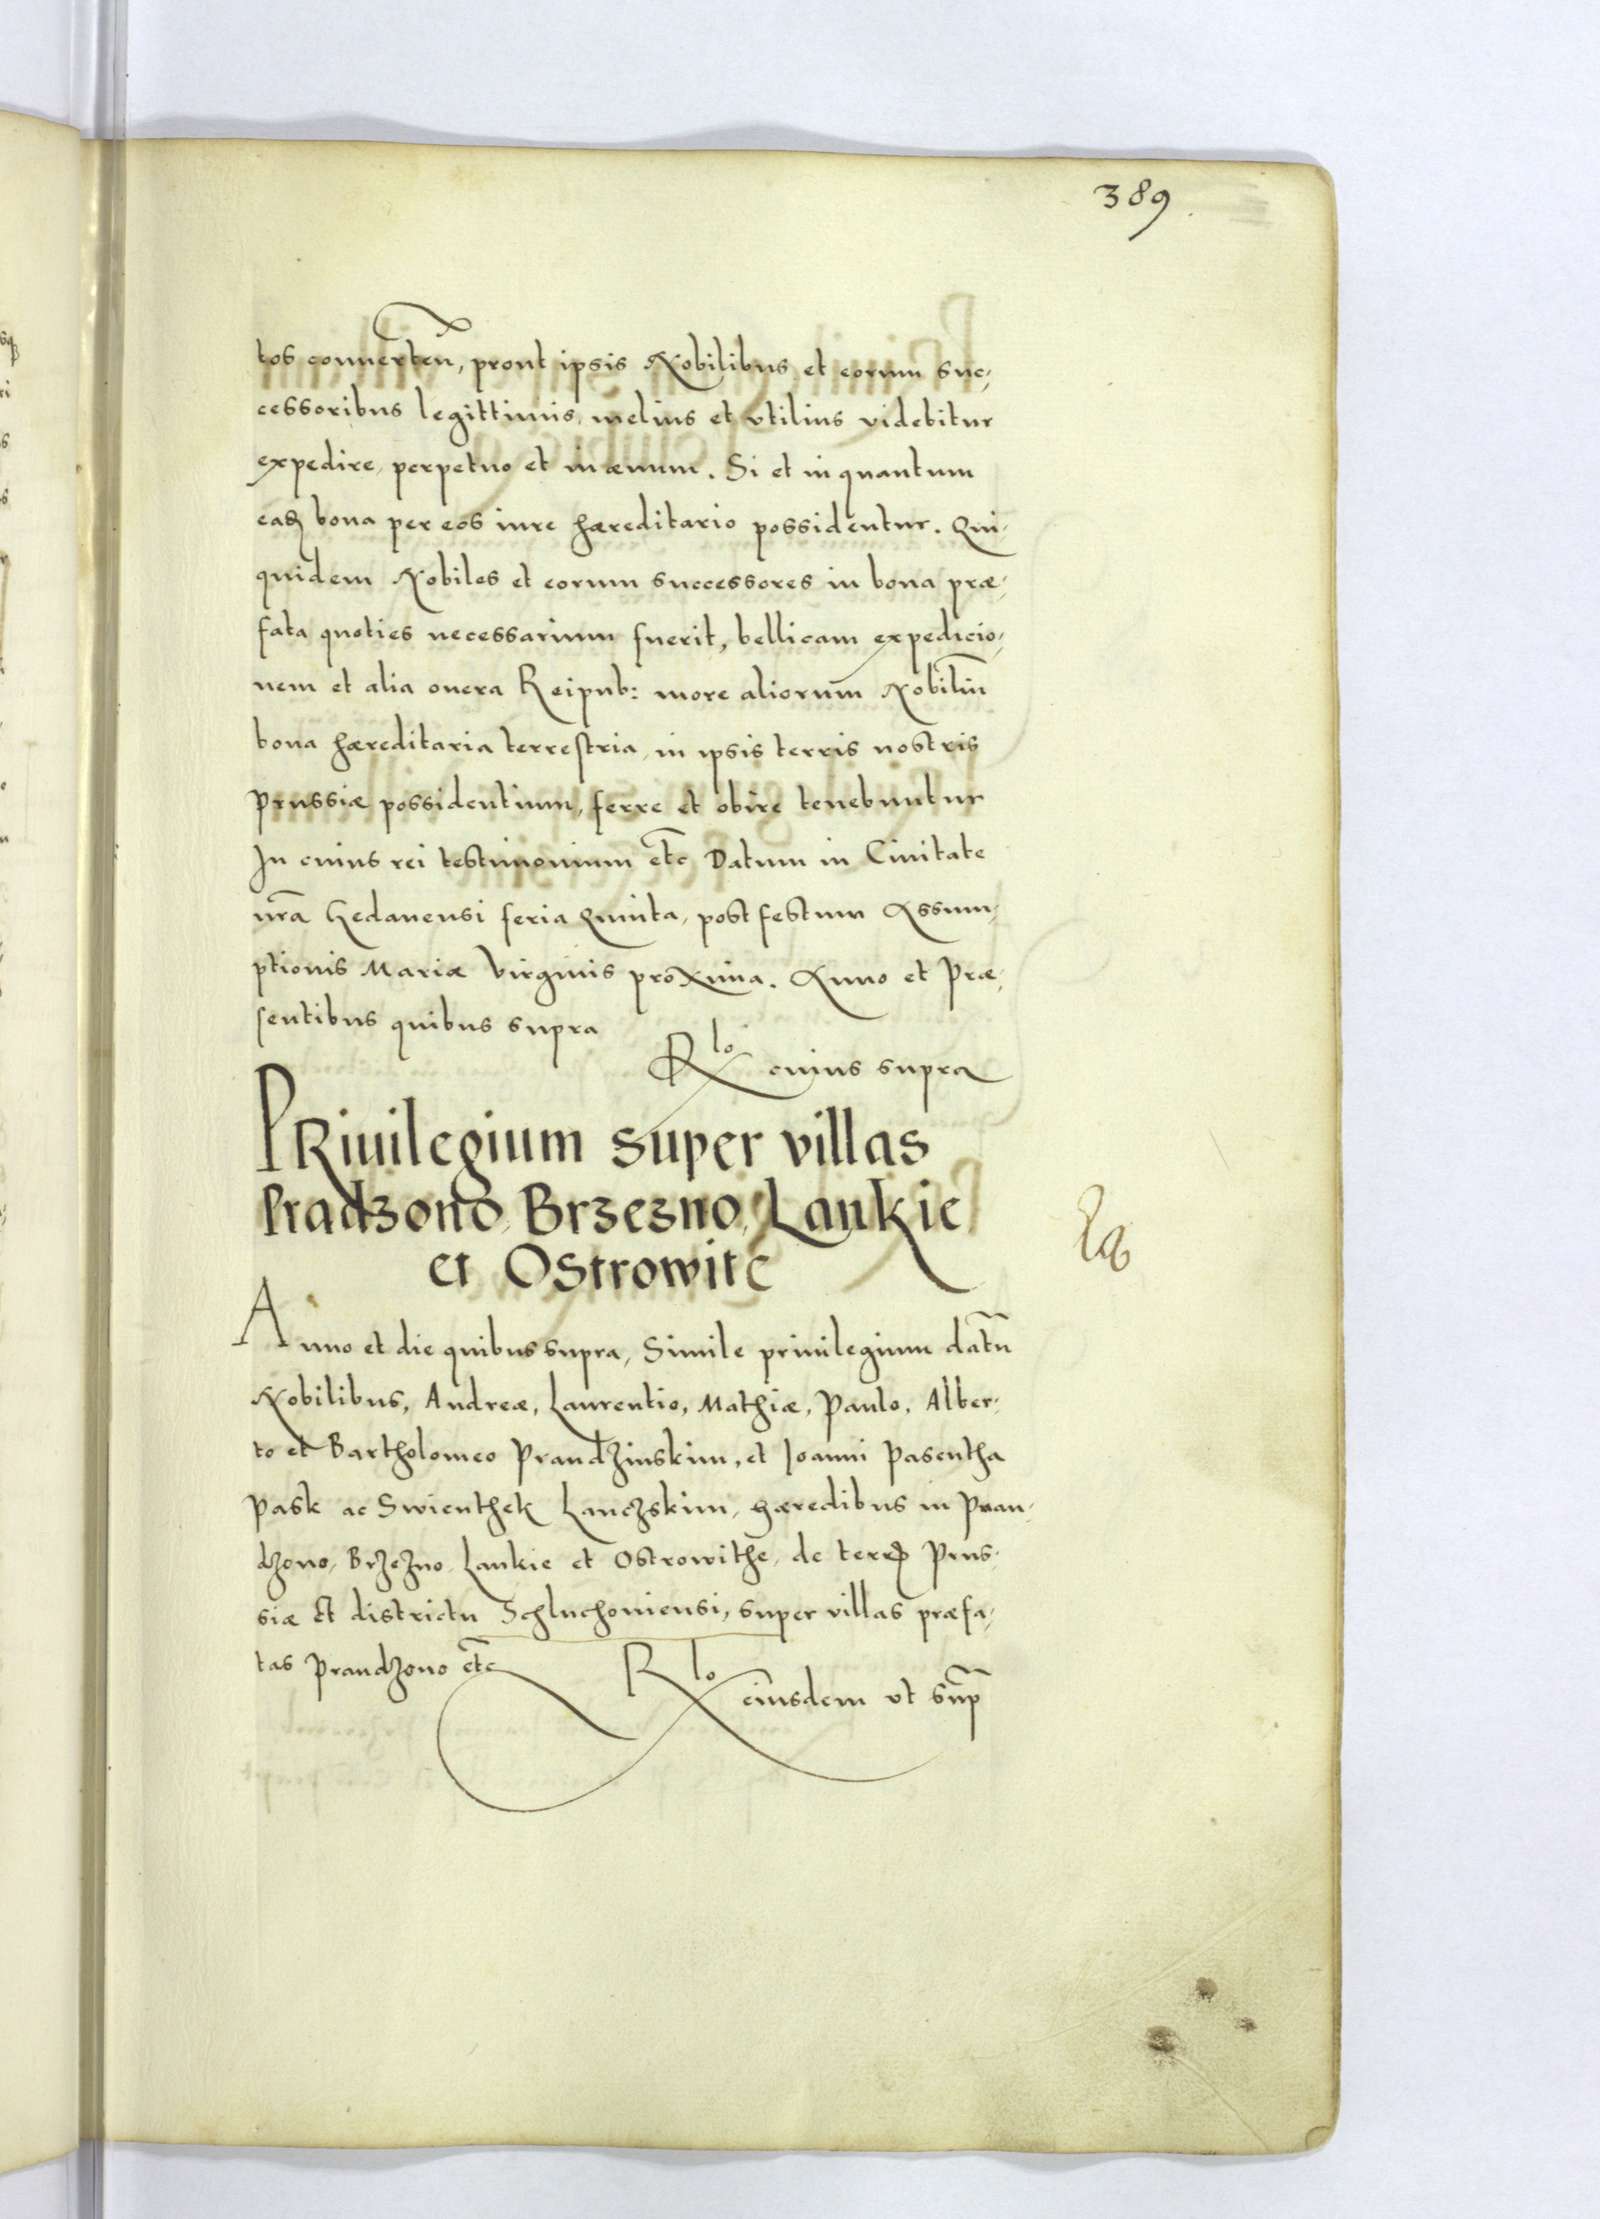 389.
tos conuerten̄, prout ipsis Nobilibus et eorum suc-
cessoribus legittimis, melius et vtilius videbitur
expedire, perpetuo et in æuum. Si et in quantum
eadē bona per eos iure hæreditario possidentur. Qui-
quidem Nobiles et eorum successores in bona præ-
fata quoties necessarium fuerit, bellicam expedicio-
nem et alia onera Reipub: more aliorum Nobiliū
bona hæreditaria terrestria, in ipsis terris nostris
Prussiæ possidentium, ferre et obire tenebuntur
In cuius rei testimonium etc̄ Datum in Ciuitate
nr̄a Gedanensi feria Quinta, post festum Assum-
ptionis Mariæ Virginis proxima. Anno et Præ-
sentibus quibus supra
Rlo cuius supra
PRiuilegium super villas
Pradzono, Brzezno, Lankie
et Ostrowite
Anno et die quibus supra, Simile priuilegium datū
Nobilibus, Andreæ, Laurentio, Mathiæ, Paulo, Alber-
to et Bartholomeo Prandzinskim, et Joanni Pasentha
Pask ac Swienthek Lanczskim, hæredibus in Pran-
dzono, Brzezno, Lankie et Ostrowithe, de terr̄ Prus-
siæ et districtu Schluchoniensi, super villas præfa-
tas Prandzono etc̄
Rlo eiusdem vt sup̄